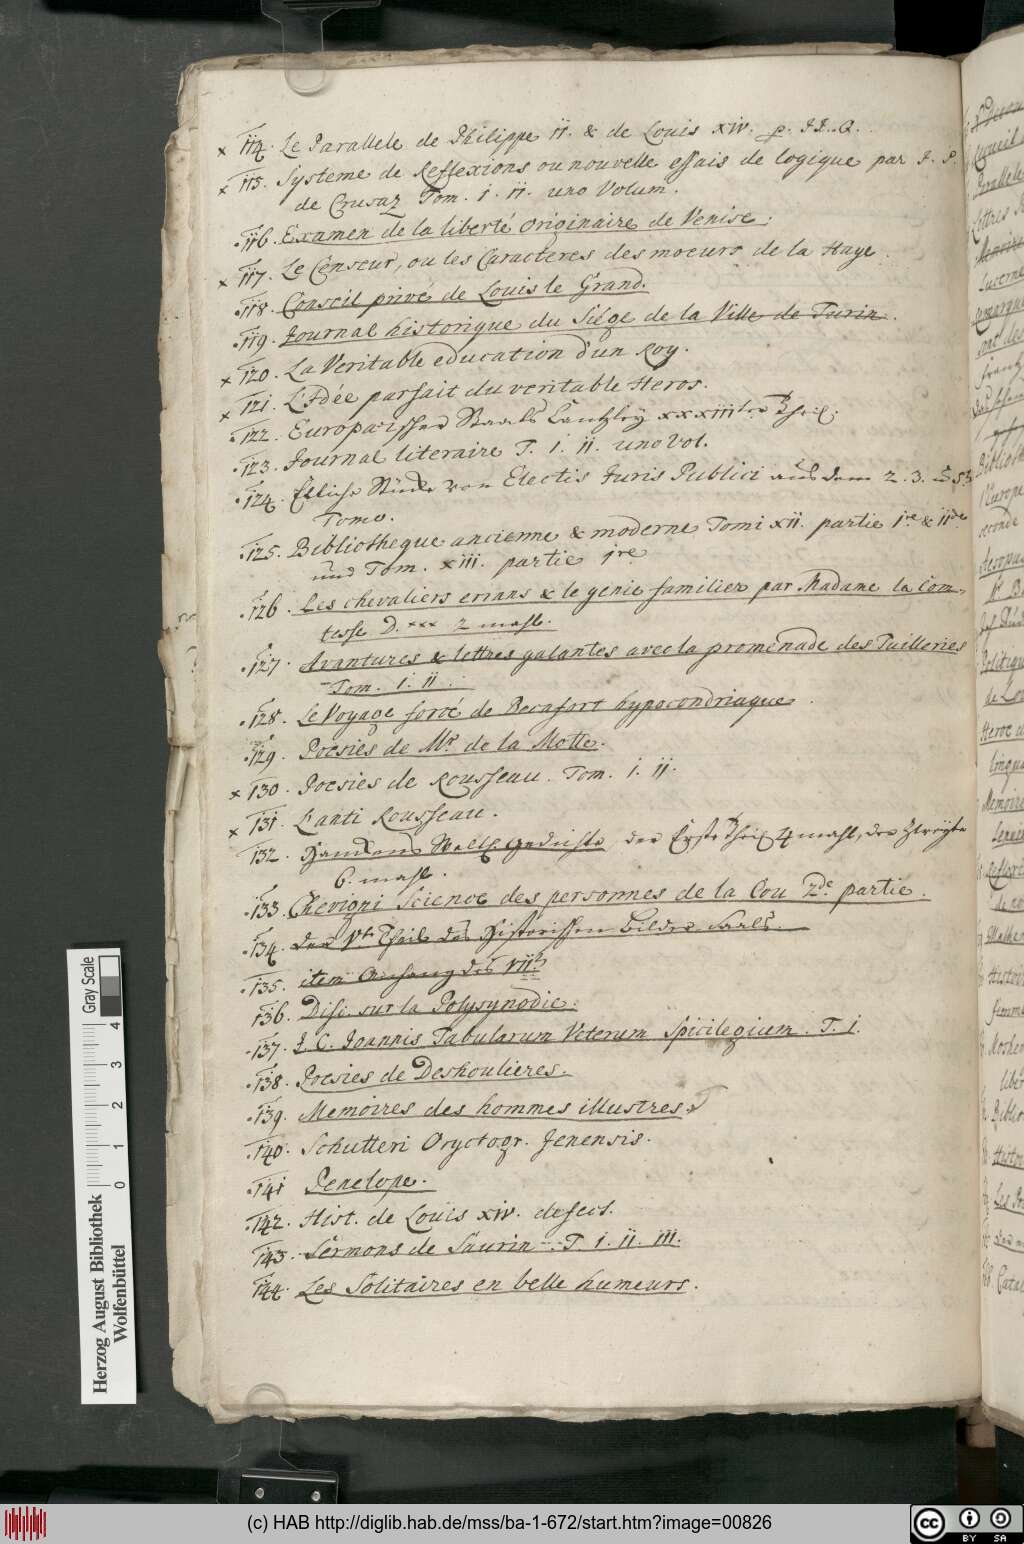 x 114. Le Parallele de Philippe II. & de Louis XIV. p. J.J.Q.
x 115. Systeme de Reflexions ou nouvelle essais de logique par J. P.
de Crusaz Tom. I. II. uno Volum.
116. Examen de la liberté originaire de Venise.
x 117. Le Censeur, ou les Caracteres des moeurs de la Haye.
118. Conseil privé de Louis le Grand.
119. Journal historique du Siége de la Ville de Turin.
x 120. La Veritable education d'un Roy.
x 121. L'Idée parfait du veritable Heros.
122. Europäischer Staats Cantzley XXXIIIter Theil.
123. Journal literaire T. I. II. uno Vol.
124. Etliche Stücke von Electis Juris Publici aus dem 2. 3. 5
Tomo.
125. Bibliotheque ancienne & moderne Tomi XII. partie 1re & IIde
und Tom. XIII. partie 1re
126. Les chevaliers errans & le genie familier par Madame la Com-
tesse D.xxx 2 mahl.
127. Avantures & lettres galantes avec la promenade des Tuilleries
Tom. I. II.
128. Le Voyage forcé de Becafort hypocondriaque.
129. Poesies de Mr de la Motte.
x 130. Poesies de Rousseau. Tom. I. II.
x 131. L'anti Rousseau.
132. Gedichte, der Erste Theil 4 mahl, der Zweyte
6. mahl.
133. Chevigni Science des personnes de la Cou 2de partie.
134. der Vte Theil des Historischen Bilder Saals.
135. item Anhang des VII
136. Disc. sur la Polysynodie.
137. J. C. Joannis Tabularum Veterum Spicilegium. T. I.
138. Poesies de Deshoulieres.
139. Memoires des hommes illustres.
140. Schutteri Oryctogr. Jenensis.
141 Penelope.
142. Hist. de Louis XIV. defect.
143. Sermons de Saurin T. I. II. III.
144. Les Solitaires en belle humeurs.
Herzog August Bibliothek
Wolfenbüttel
Gray Scale
0 1 2 3 4
(c) HAB http://diglib.hab.de/mss/ba-1-672/start.htm?image=00826
cc BY SA